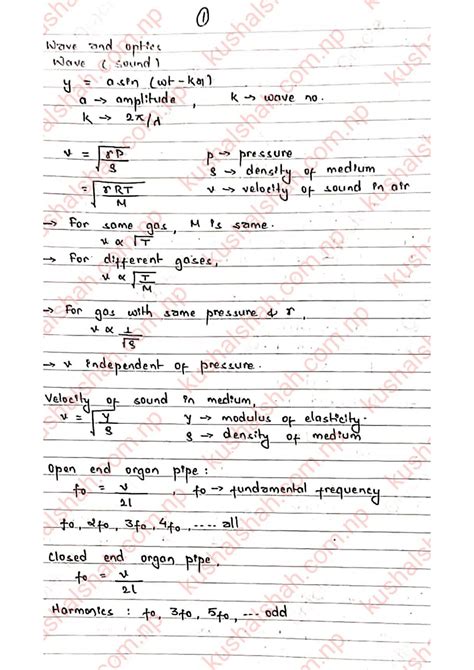 ①
Wave and optics
Wave (sound)
y = a sin (ωt - kx)
a → amplitude, k → wave no.
k → 2π/λ
v = √(γP/ρ) p → pressure
ρ → density of medium
= √(γRT/M) v → velocity of sound in air
→ For same gas, M is same.
v ∝ √T
→ For different gases,
v ∝ √(T/M)
→ For gas with same pressure & γ,
v ∝ 1/√ρ
→ v independent of pressure.
Velocity of sound in medium,
v = √(Y/ρ) Y → modulus of elasticity.
ρ → density of medium
Open end organ pipe :
f₀ = v/2l , f₀ → fundamental frequency
f₀, 2f₀, 3f₀, 4f₀, .... all
Closed end organ pipe,
f₀ = v/2l
Harmonics : f₀, 3f₀, 5f₀, ... odd
kushalshah.com.np